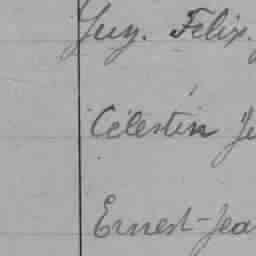 Guy. Félix.
Célestin
Ernest-Jea